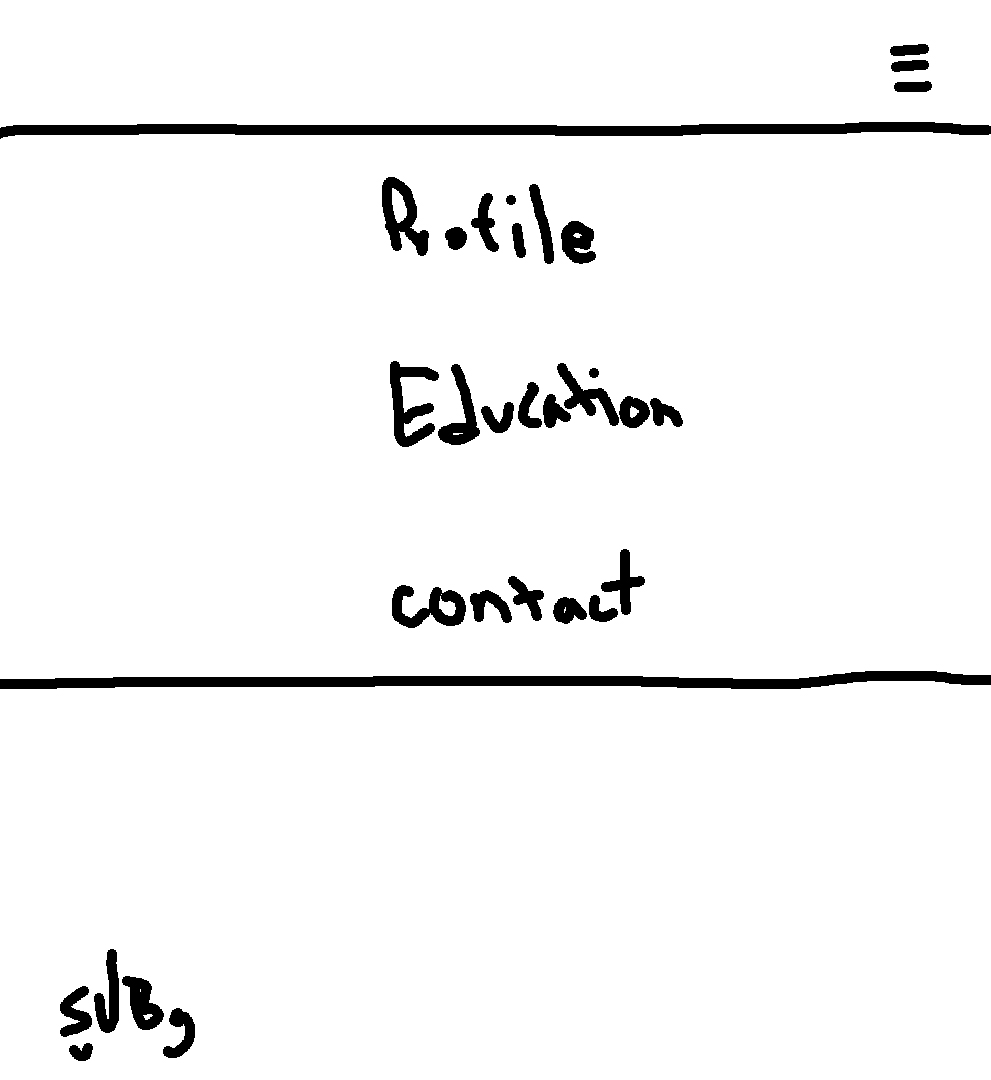 Profile
Education
contact